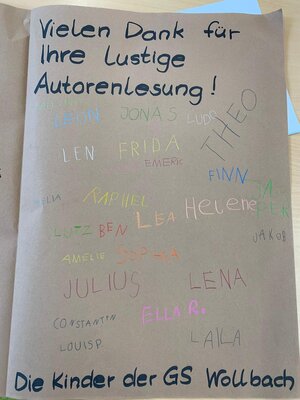 Vielen Dank für
Ihre lustige
Autorenlesung!
LEON JONAS THEO
LEN FRIDA
EMERK
FINN
RAPHEL
LUTZ BEN LEA Helene JAS
PER
JAKOB
AMELIE SOPHIA
JULIUS LENA
CONSTANTIN ELLA R.
LOUIS P. LAILA
Die Kinder der GS Wollbach